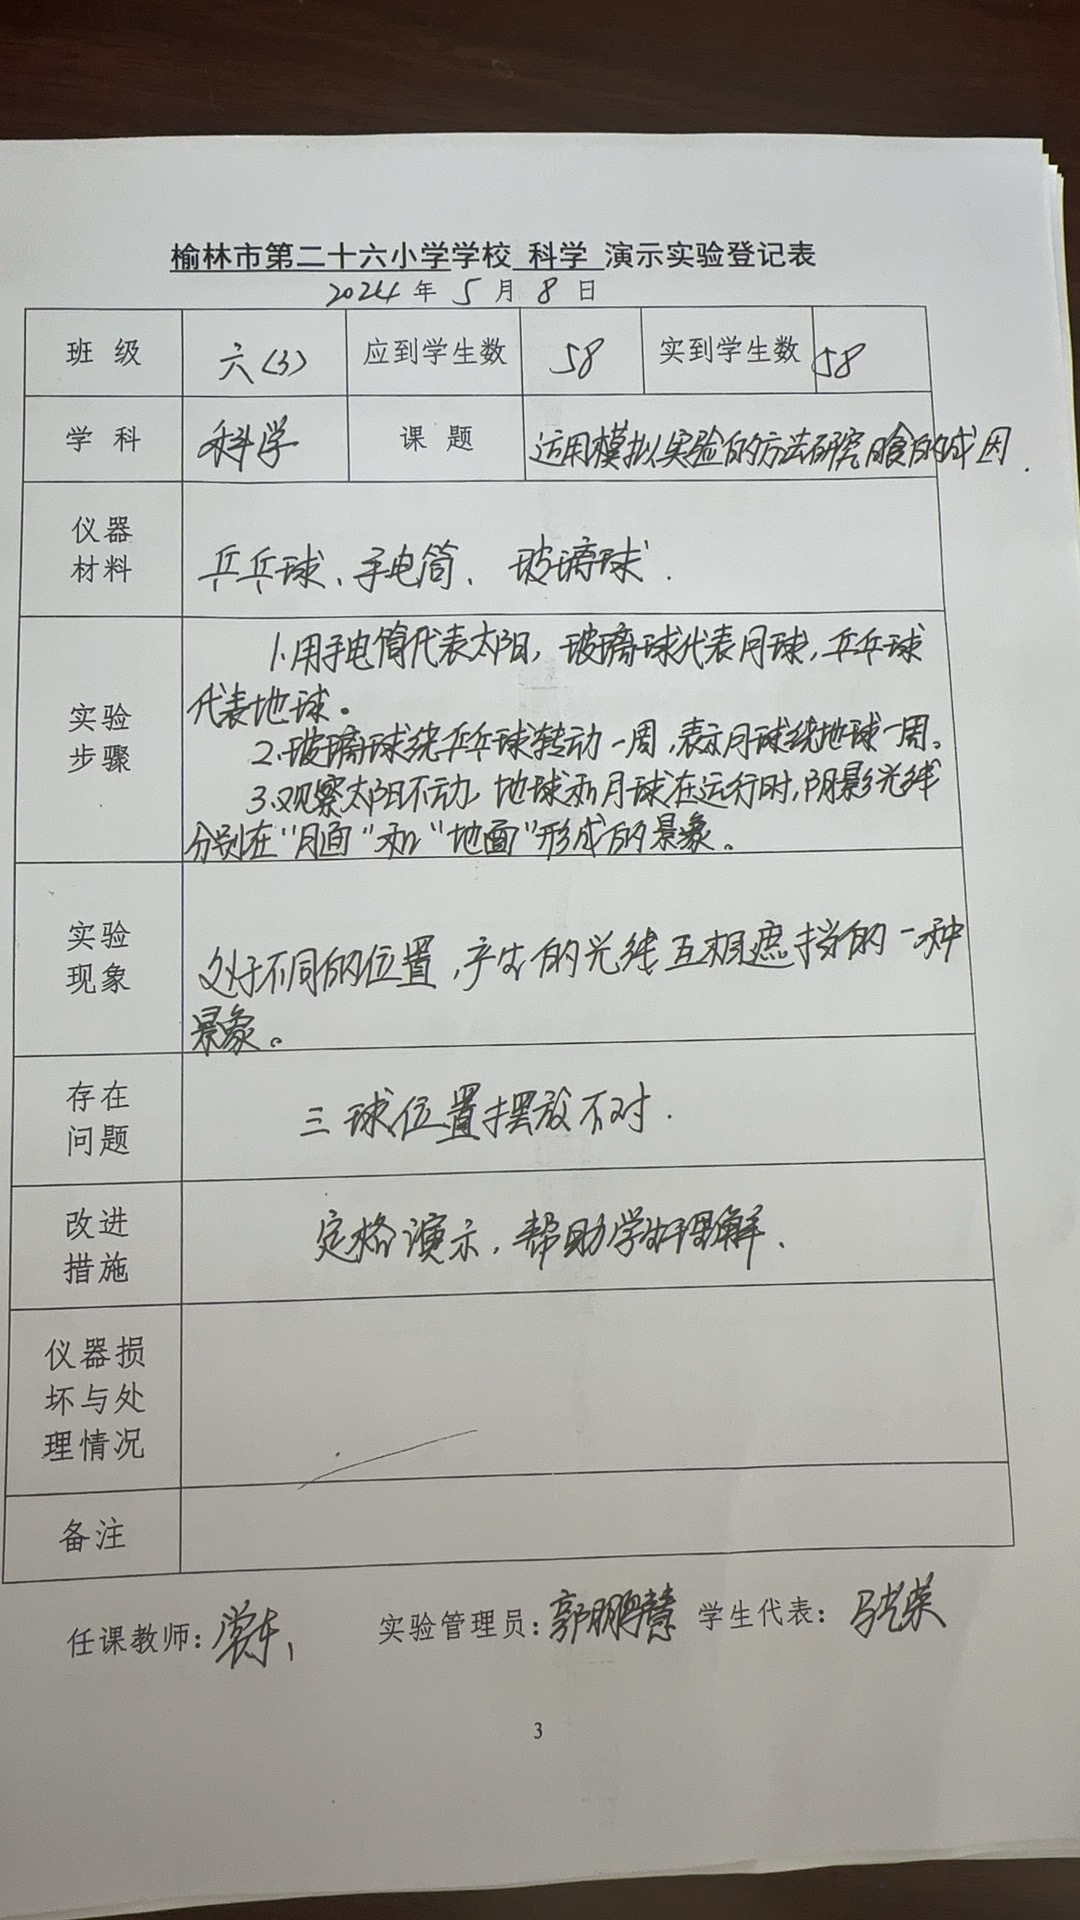 榆林市第二十六小学学校 科学 演示实验登记表
2024 年 5 月 8 日
班 级 六(3) 应到学生数 58 实到学生数 58
学 科 科学 课 题 运用模拟实验的方法研究日食的成因.
仪器
材料
乒乓球、手电筒、玻璃球.
实验
步骤
1.用手电筒代表太阳，玻璃球代表月球，乒乓球
代表地球。
2.玻璃球绕乒乓球转动一周，表示月球绕地球一周。
3.观察太阳不动，地球和月球在运行时，阴影光线
分别在“月面”和“地面”形成的景象。
实验
现象
处于不同的位置，产生的光线互相遮挡的一种
景象。
存在
问题
三球位置摆放不对.
改进
措施
定格演示，帮助学生理解.
仪器损
坏与处
理情况
备注
任课教师: 实验管理员:郭鹏慧 学生代表:
3